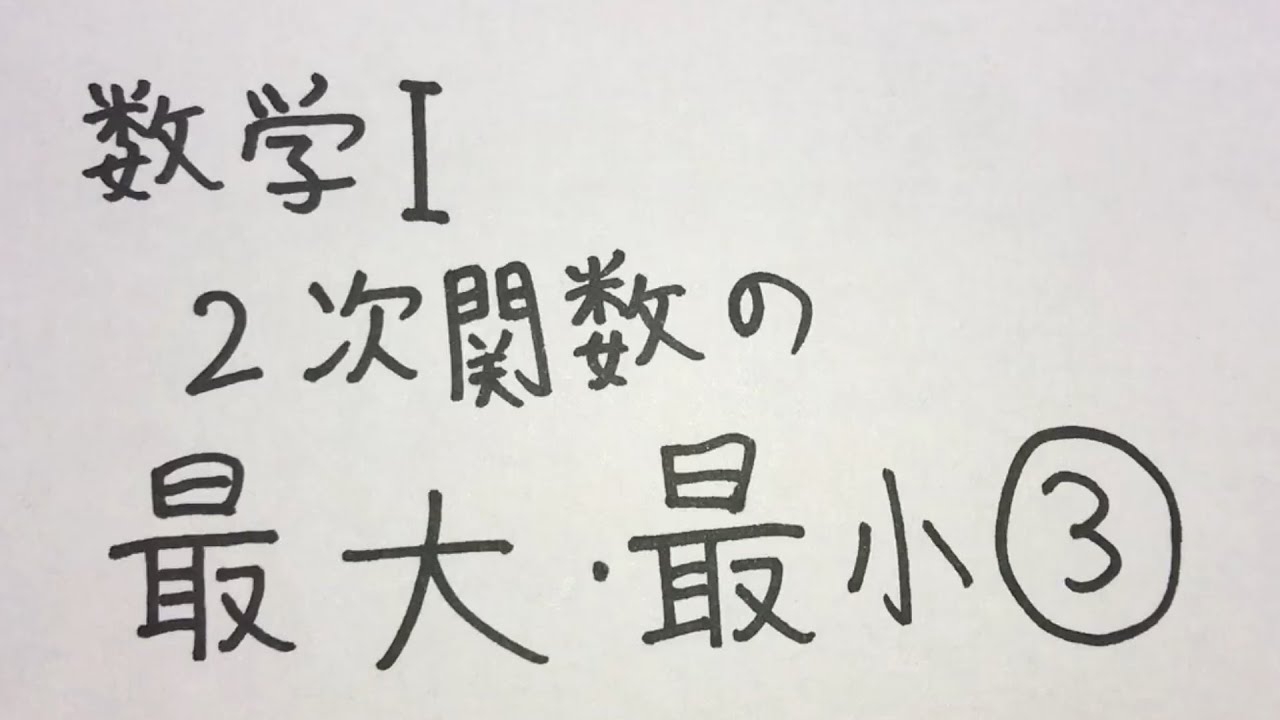 数学I
2次関数の
最大・最小③